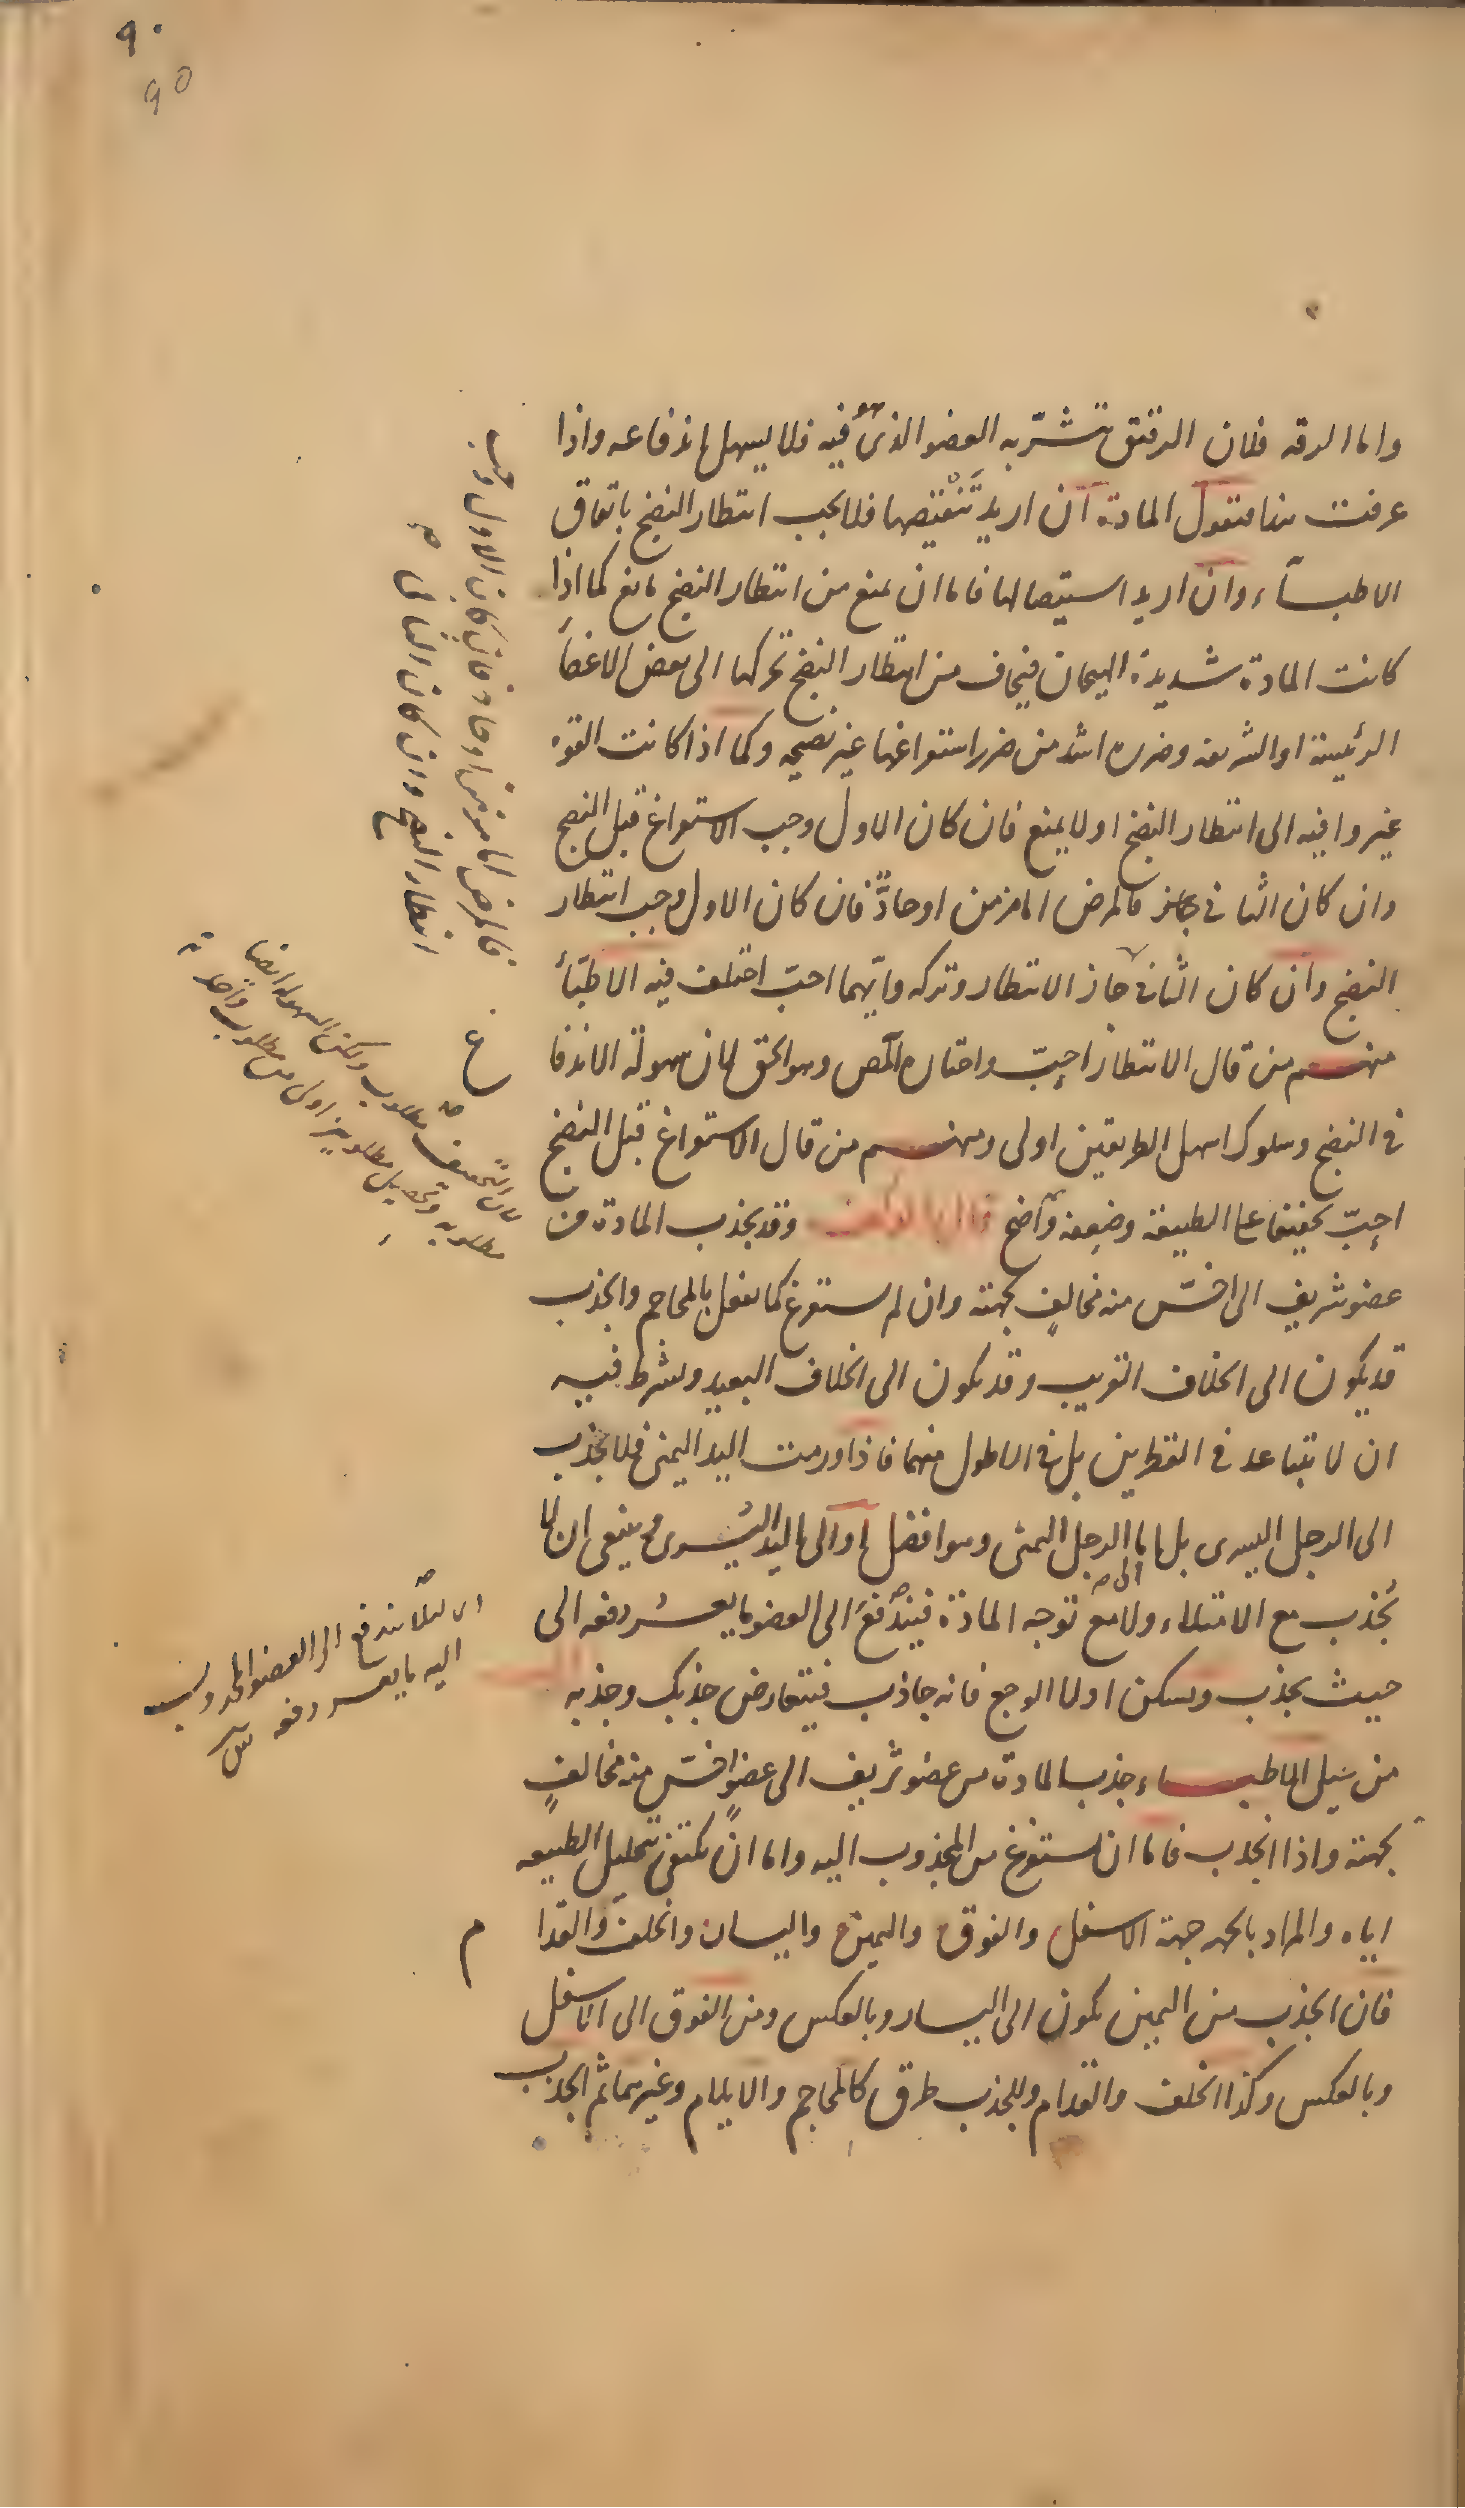 ٩٠
90
واما الرقه فلان الرقيق تتشربه العضو الذى هو فيه فلا يسهل اندفاعه واذا
عرفت هذا فنقول المادة ان اريد تنقيصها فلا يجب انتظار النضج باتفاق
الاطباء وان اريد استيصالها فاما ان يمنع من انتظار النضج مانع كما اذا
كانت المادة شديدة الهيجان فيخاف من انتظار النضج تحركها الى بعض الاعضاء
الرئيسة او الشريفه وضرره اشد من ضرر استفراغها غير نضيجه وكما اذا كانت القوة
غير وافيه الى انتظار النضج او لا يمنع فان كان الاول وجب الاستفراغ قبل النضج
وان كان الثانى فالمرض اما مزمن او حاد فان كان الاول وجب انتظار
النضج وان كان الثانى جاز الانتظار وتركه وايهما احب اختلف فيه الاطباء
منهم من قال الانتظار احب واختاره المص وهو الحق لان سهولة الاندفا ع
فى النضج وسلوك اسهل الطريقين اولى ومنهم من قال الاستفراغ قبل النضج
احب تخفيفا على الطبيعة وضعفه واضح وقد يجذب المادة من
عضو شريف الى اخس منه مخالف بجهته وان لم يستفرغ كما يفعل بالمحاجم والجذب
قد يكون الى الخلاف القريب وقد يكون الى الخلاف البعيد ويشرط فيه
ان لا يتباعد فى القطرين بل فى الاطول منهما فاذا ورمت اليد اليمنى فلا يجذب
الى الرجل اليسرى بل اما الى الرجل اليمنى وهو افضل او الى اليد اليسرى وينبغى ان لا
يجذب مع الامتلاء ولا مع توجه المادة فيندفع الى العضو ما يعسر دفعه الى
حيث يجذب ويسكن اولا الوجع فانه جاذب فيتعارض جذبك وجذبه
من سبيل الاطباء جذب المادة من عضو شريف الى عضو اخس منه مخالف
بجهته واذا انجذب فاما ان يستفرغ من المجذوب اليه واما ان يكتفى بتحليل الطبيعه
اياه والمراد بالجهه جهة الاسفل والفوق واليمين واليسار والخلف والقدا م
فان الجذب من اليمين يكون الى اليسار وبالعكس ومن الفوق الى الاسفل
وبالعكس وكذا الخلف والقدام وللجذب طرق كالمحاجم والايلام وغيرهما ثم الجذب
فالمرض اما مزمن او حاد فان كان الاول وجب
انتظار النضج وان كان الثانى
لان التخفيف مطلوب ولكن السهولة ايضا
مطلوبه وتحصيل مطلوبين اولى من مطلوب واحد
اى لئلا يندفع الى العضو المجذوب
اليه ما يعسر دفعه